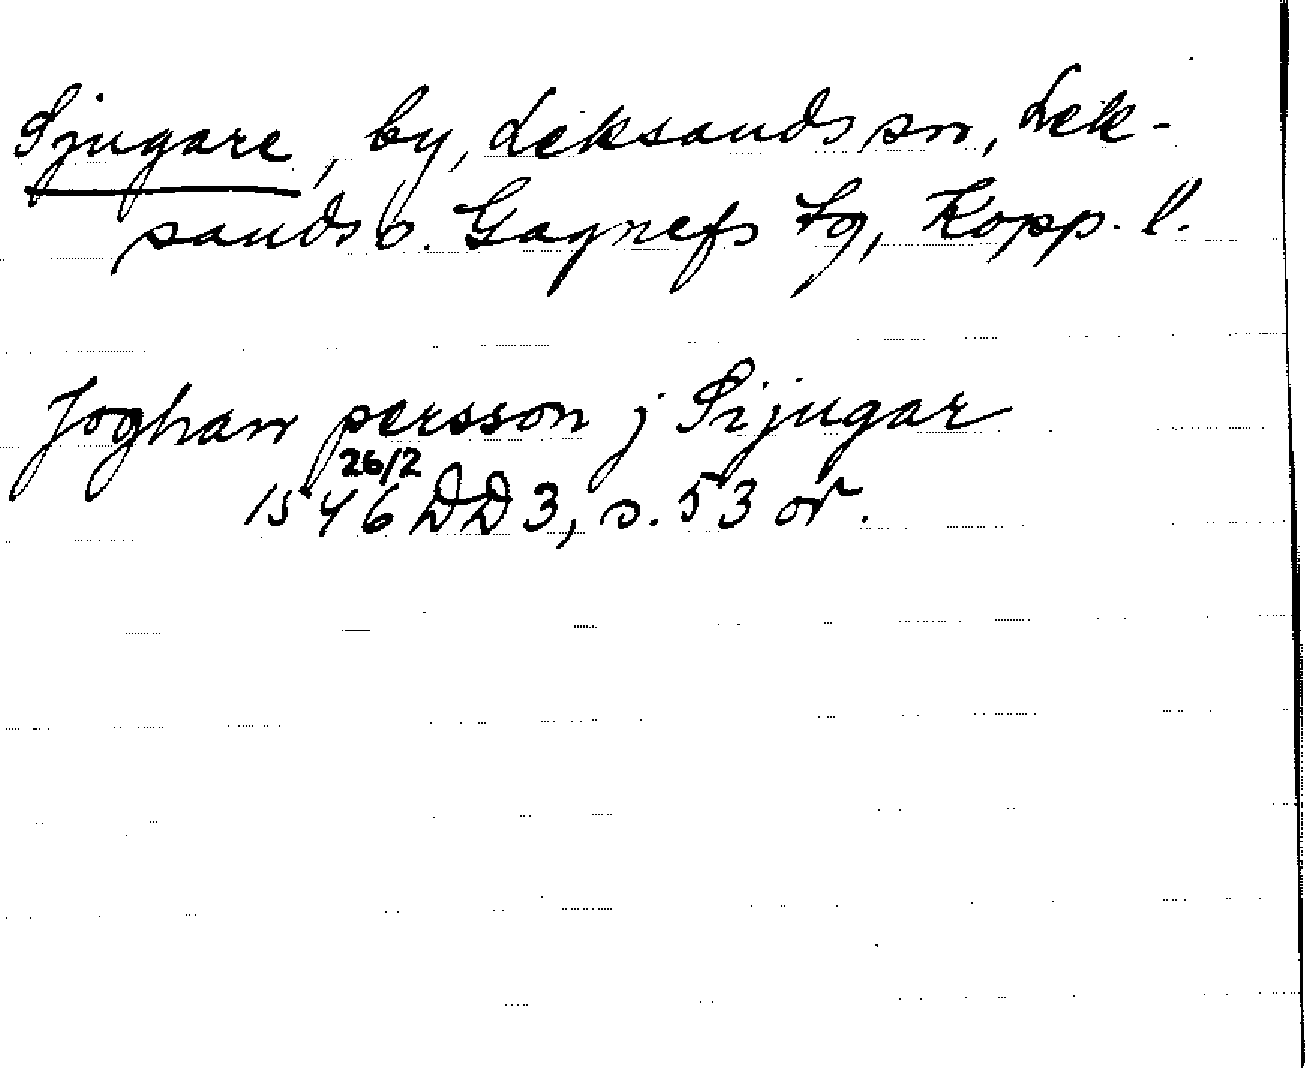 Sjugare, by, Leksands sn, Lek-
sands o. Gagnefs tg, Kopp. l.
Joghan persson j Sijugar
26/2
1546 DD 3, s. 53 or.